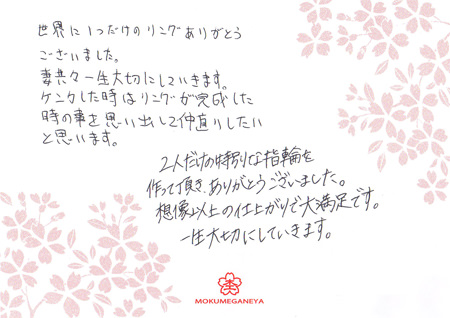 世界に1つだけのリングありがとう
ございました。
妻共々一生大切にしていきます。
ケンカした時はリングが完成した
時の事を思い出して仲直りしたい
と思います。
2人だけの特別な指輪を
作って頂き、ありがとうございました。
想像以上の仕上がりで大満足です。
一生大切にしていきます。
MOKUMEGANEYA